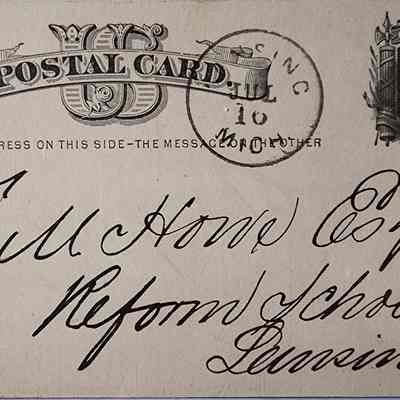 US
POSTAL CARD.
SING
JUL
16
MICH
RESS ON THIS SIDE–THE MESSAGE ON THE OTHER
M. Howe Esq
Reform Schoo
Lansin